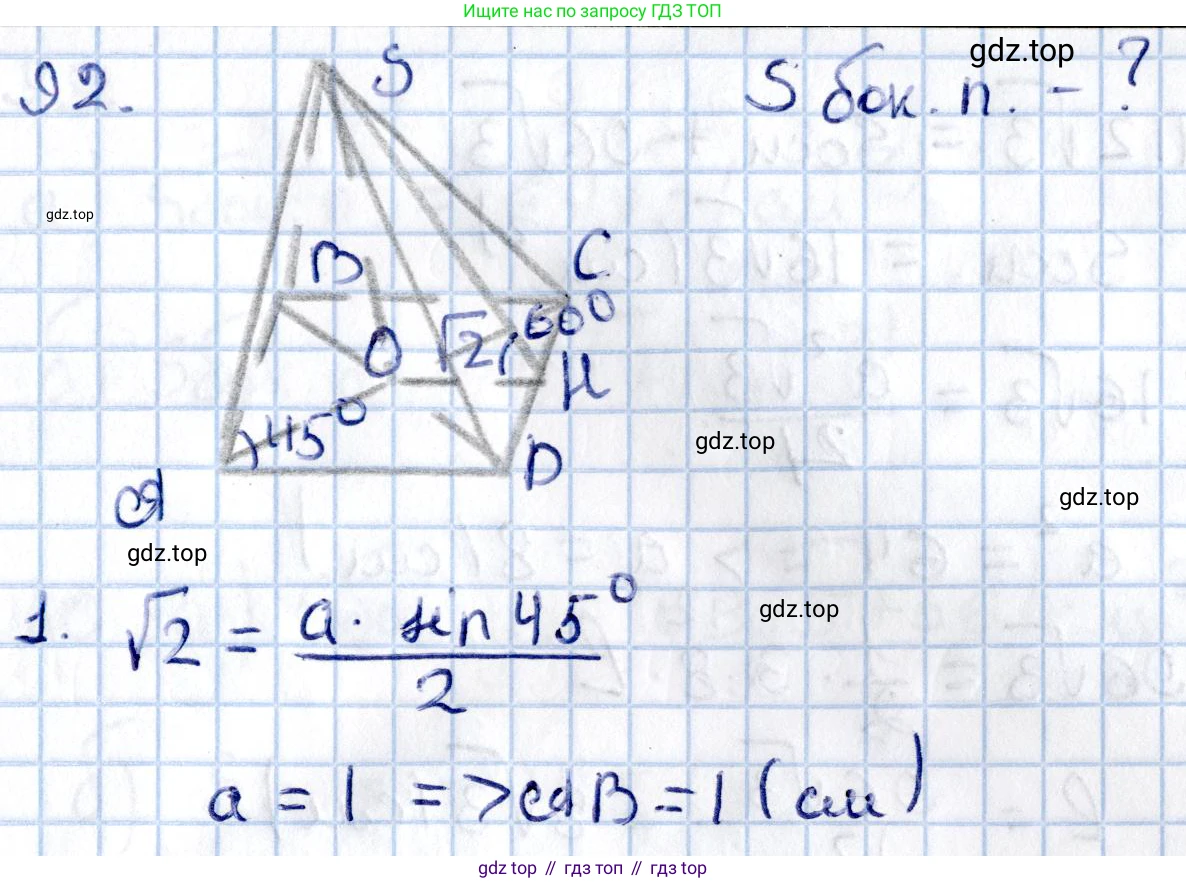 Ищите нас по запросу ГДЗ ТОП
92.
S
S бок. п. - ?
gdz.top
gdz.top
B
C
O
√2
60°
H
45°
gdz.top
D
A
gdz.top
gdz.top
1. √2 = a · sin 45° / 2
gdz.top
a = 1 => AB = 1 (см)
gdz top // гдз топ // гдз top